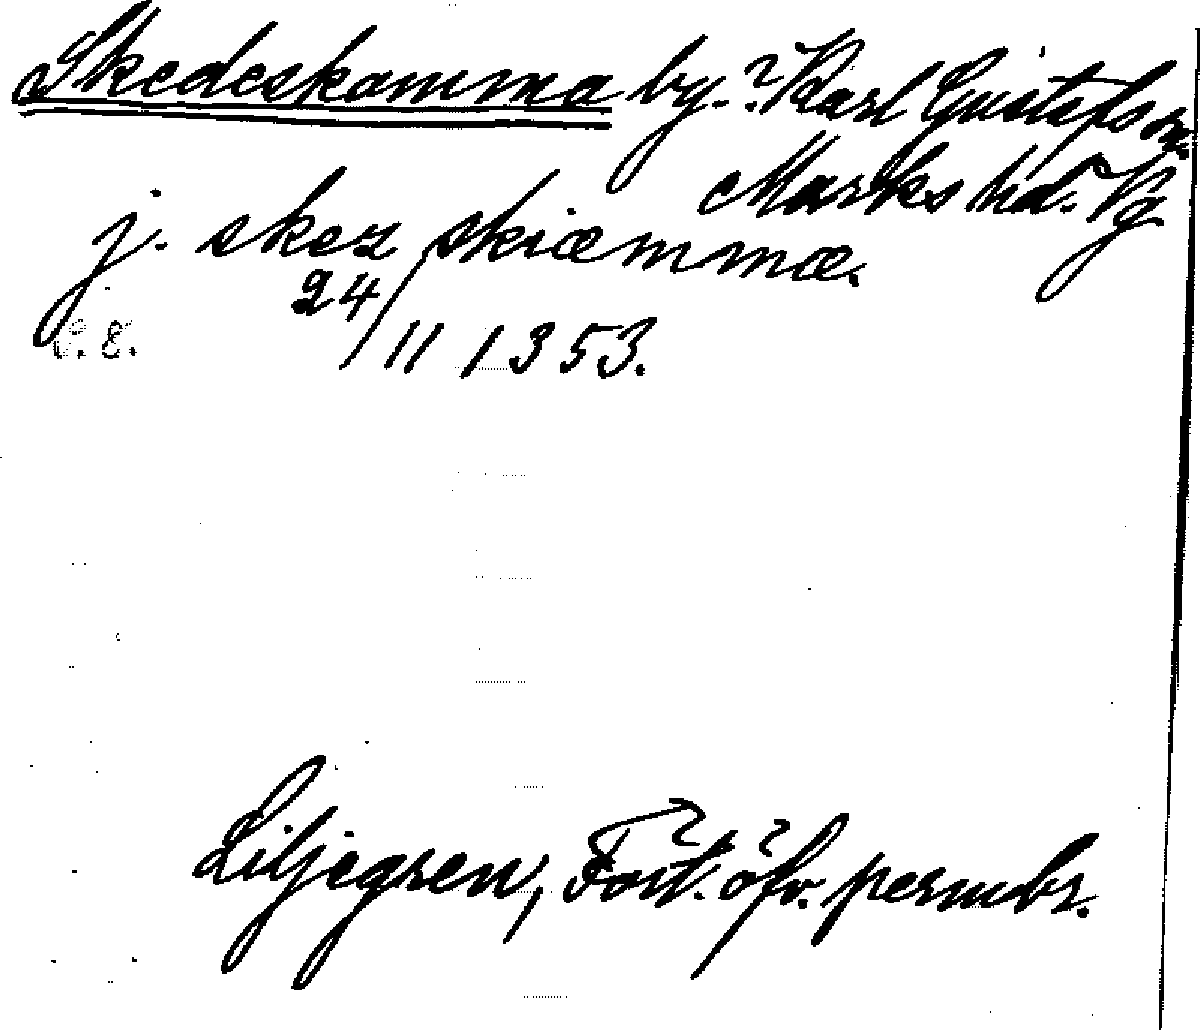 Skedeskamma by. ? Karl Gustafs sn.
Marks hd. Vg
j. skez skiæmmæ.
24/11 1353.
Liljegren, Fört. öfv. permbr.